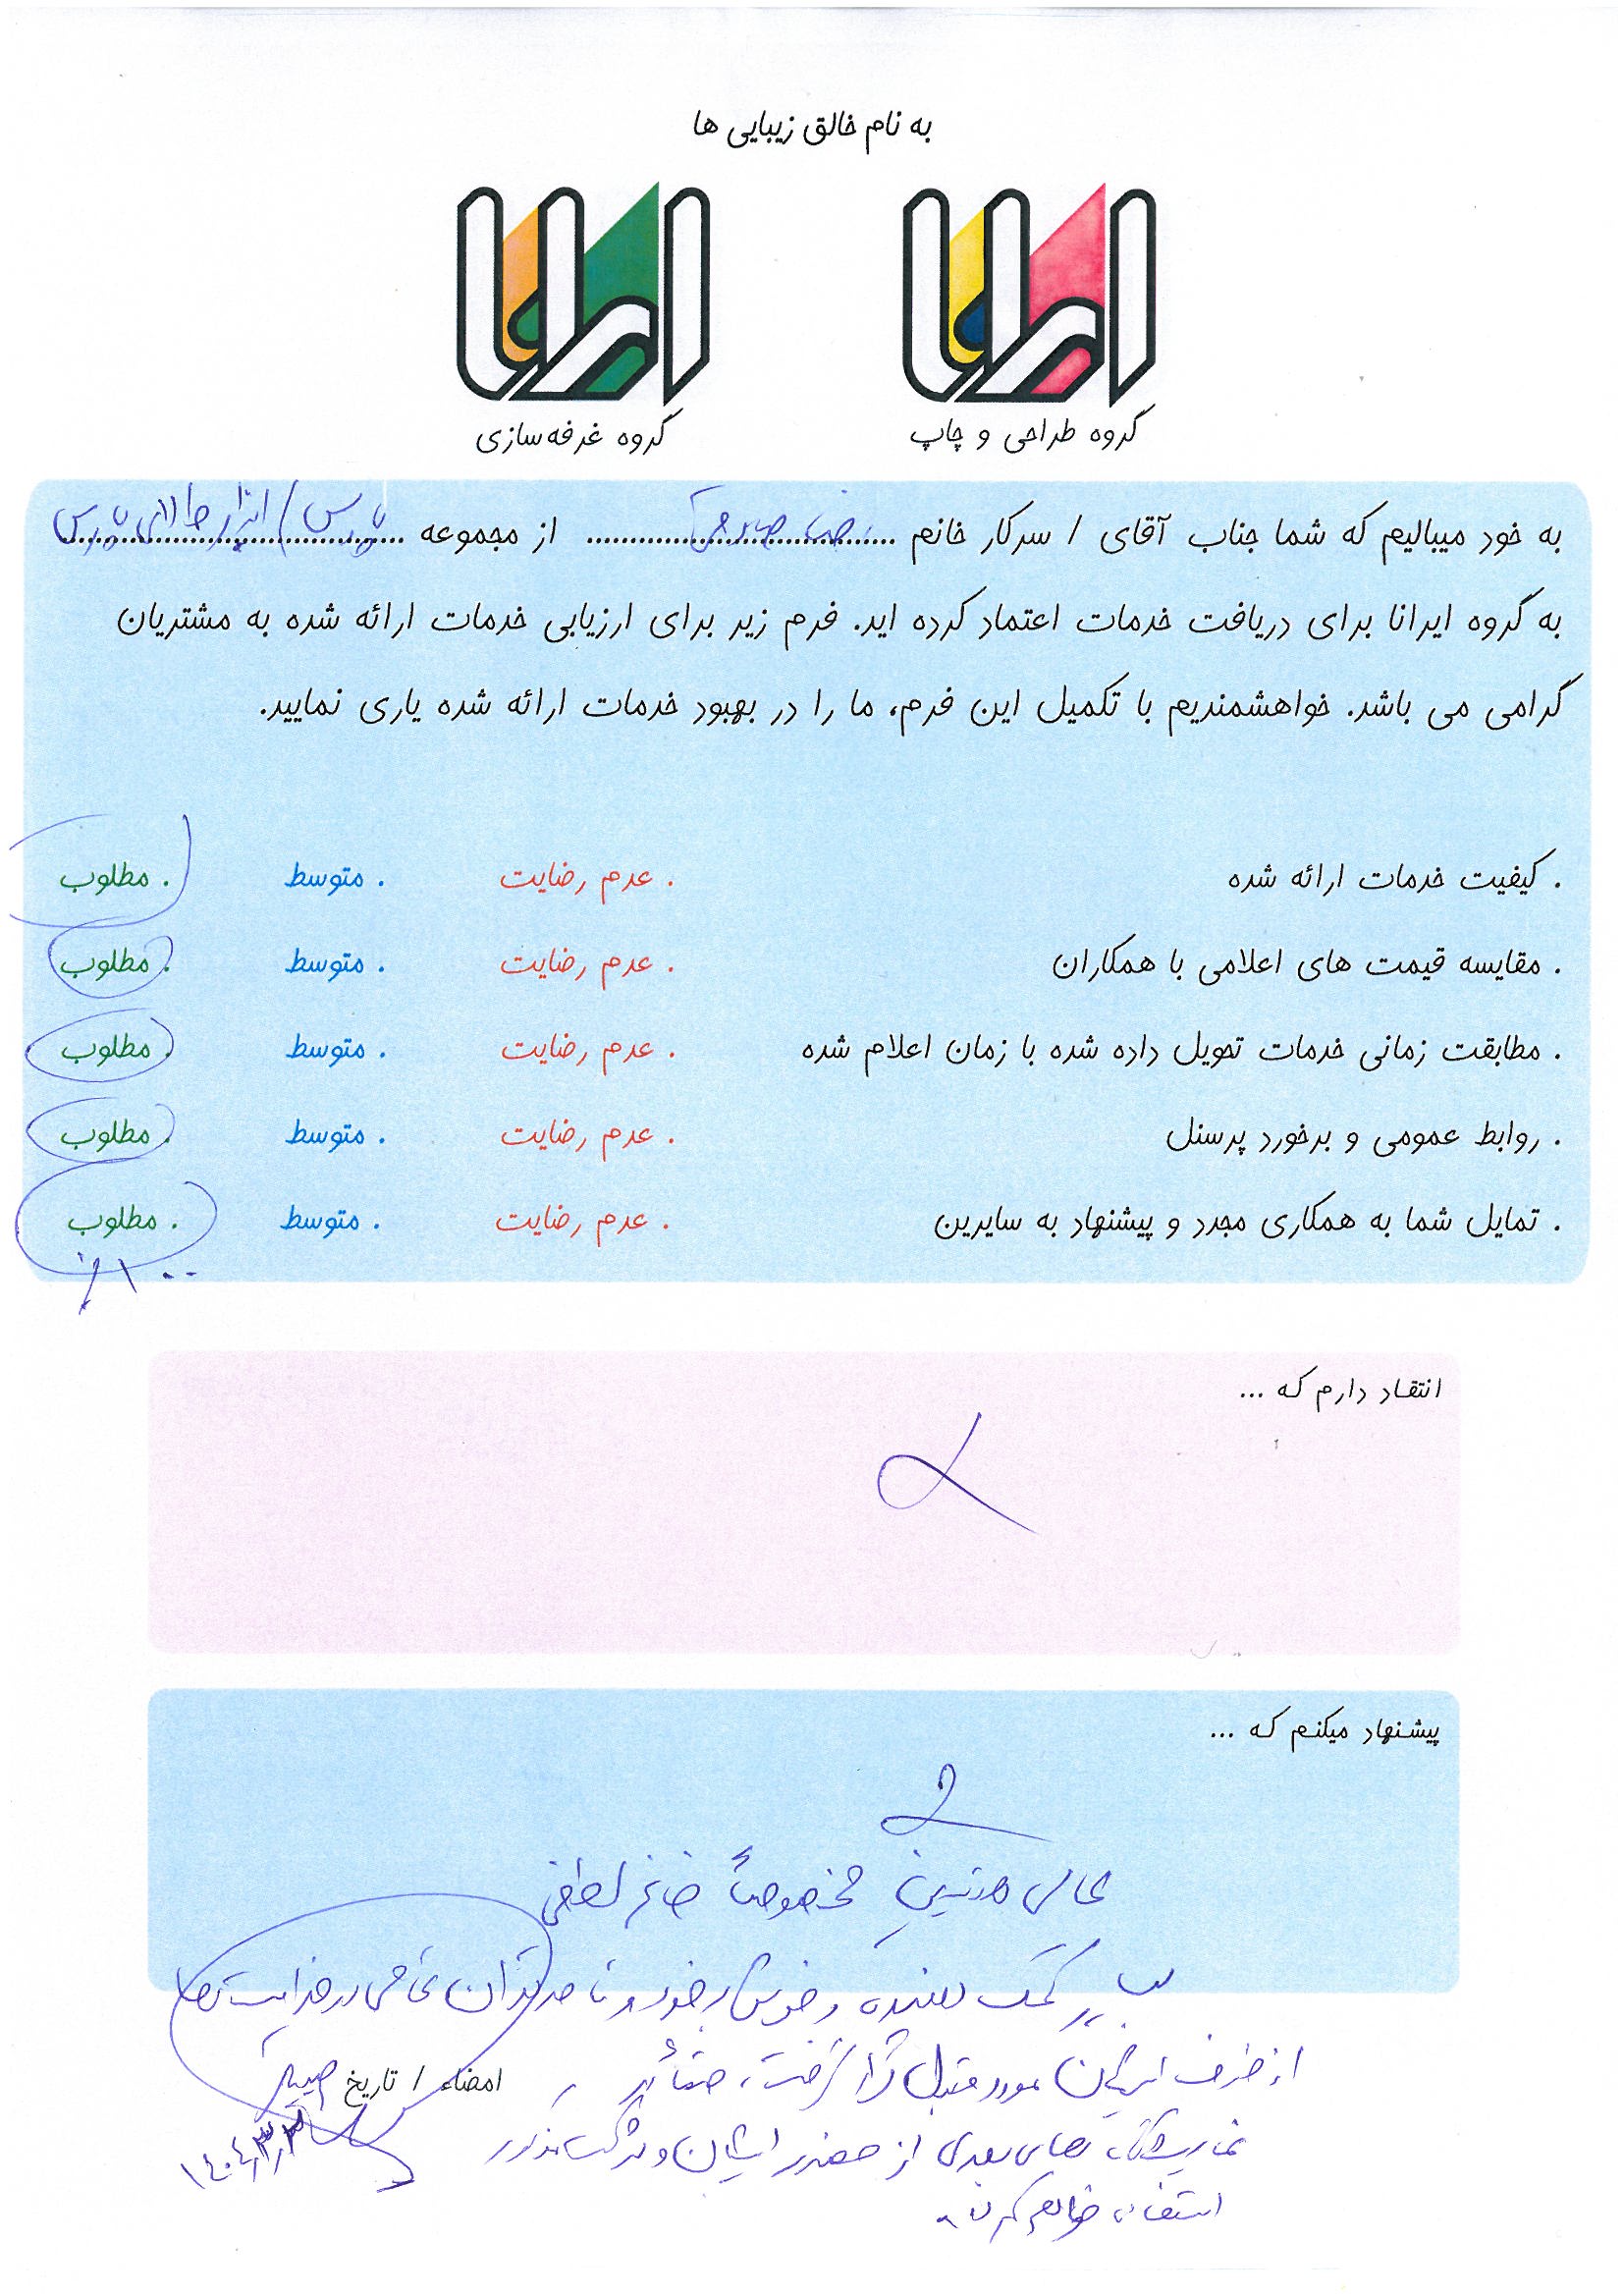 به نام خالق زیبایی ها
ایرانا ایرانا
گروه طراحی و چاپ گروه غرفه‌سازی
به خود میبالیم که شما جناب آقای / سرکار خانم .......... از مجموعه پارس / ابزار طلای پارس
به گروه ایرانا برای دریافت خدمات اعتماد کرده اید. فرم زیر برای ارزیابی خدمات ارائه شده به مشتریان
گرامی می باشد. خواهشمندیم با تکمیل این فرم، ما را در بهبود خدمات ارائه شده یاری نمایید.
. کیفیت خدمات ارائه شده . عدم رضایت . متوسط . مطلوب
. مقایسه قیمت های اعلامی با همکاران . عدم رضایت . متوسط . مطلوب
. مطابقت زمانی خدمات تحویل داده شده با زمان اعلام شده . عدم رضایت . متوسط . مطلوب
. روابط عمومی و برخورد پرسنل . عدم رضایت . متوسط . مطلوب
. تمایل شما به همکاری مجدد و پیشنهاد به سایرین . عدم رضایت . متوسط . مطلوب
۱۰۰٪
انتقاد دارم که ...
پیشنهاد میکنم که ...
عالی هستین مخصوصاً خانم لطفی
بسیار کمک کننده و خوش برخورد و تا حد توان تمامی درخواست‌ها
از طرف ایشان مورد قبول قرار گرفت، حتماً در
نمایشگاه های بعدی از حضور ایشان و شرکت مذکور
استفاده خواهم کرد.
امضاء / تاریخ
۱۴۰۴,۳,۳